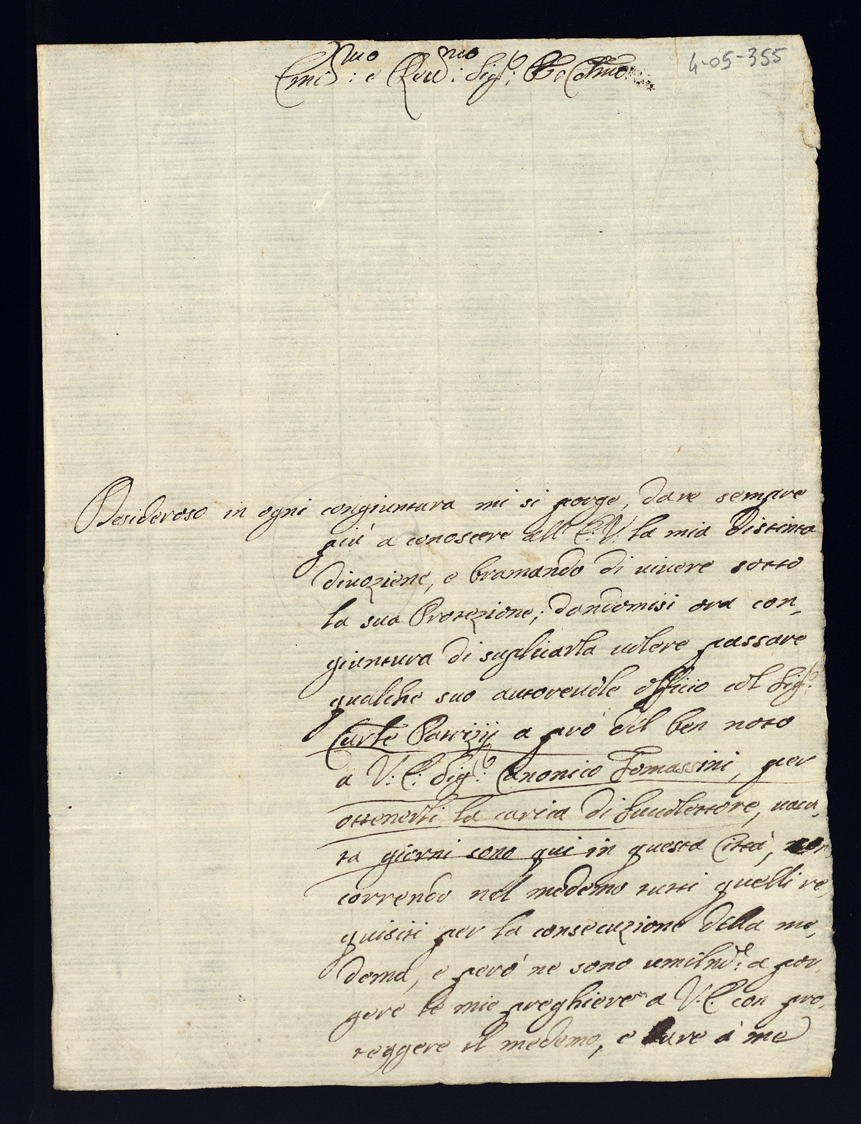 4-05-355
Em.mo e Rev.mo Sig.r
Desideroso in ogni congiuntura mi si porge, dare sempre
più a conoscere all' E. V. la mia distinta
divozione, e bramando di vivere sotto
la sua Protezione; dandomisi ora con-
giuntura di suplicarla volere passare
qualche suo autorevole officio col Sig.r
Patrizij a prò del ben noto
a V. E. Sig.r Canonico Tomassini, per
ottenerli la carica di Succolettore, vaca-
ta giorni sono qui in questa Città,
correndo nel medemo tutti quelli re-
quisiti per la consecuzione della me-
dema, e però ne sono umilm.e a por-
gere le mie preghiere a V. E. con pro-
teggere il medemo, e dare à me